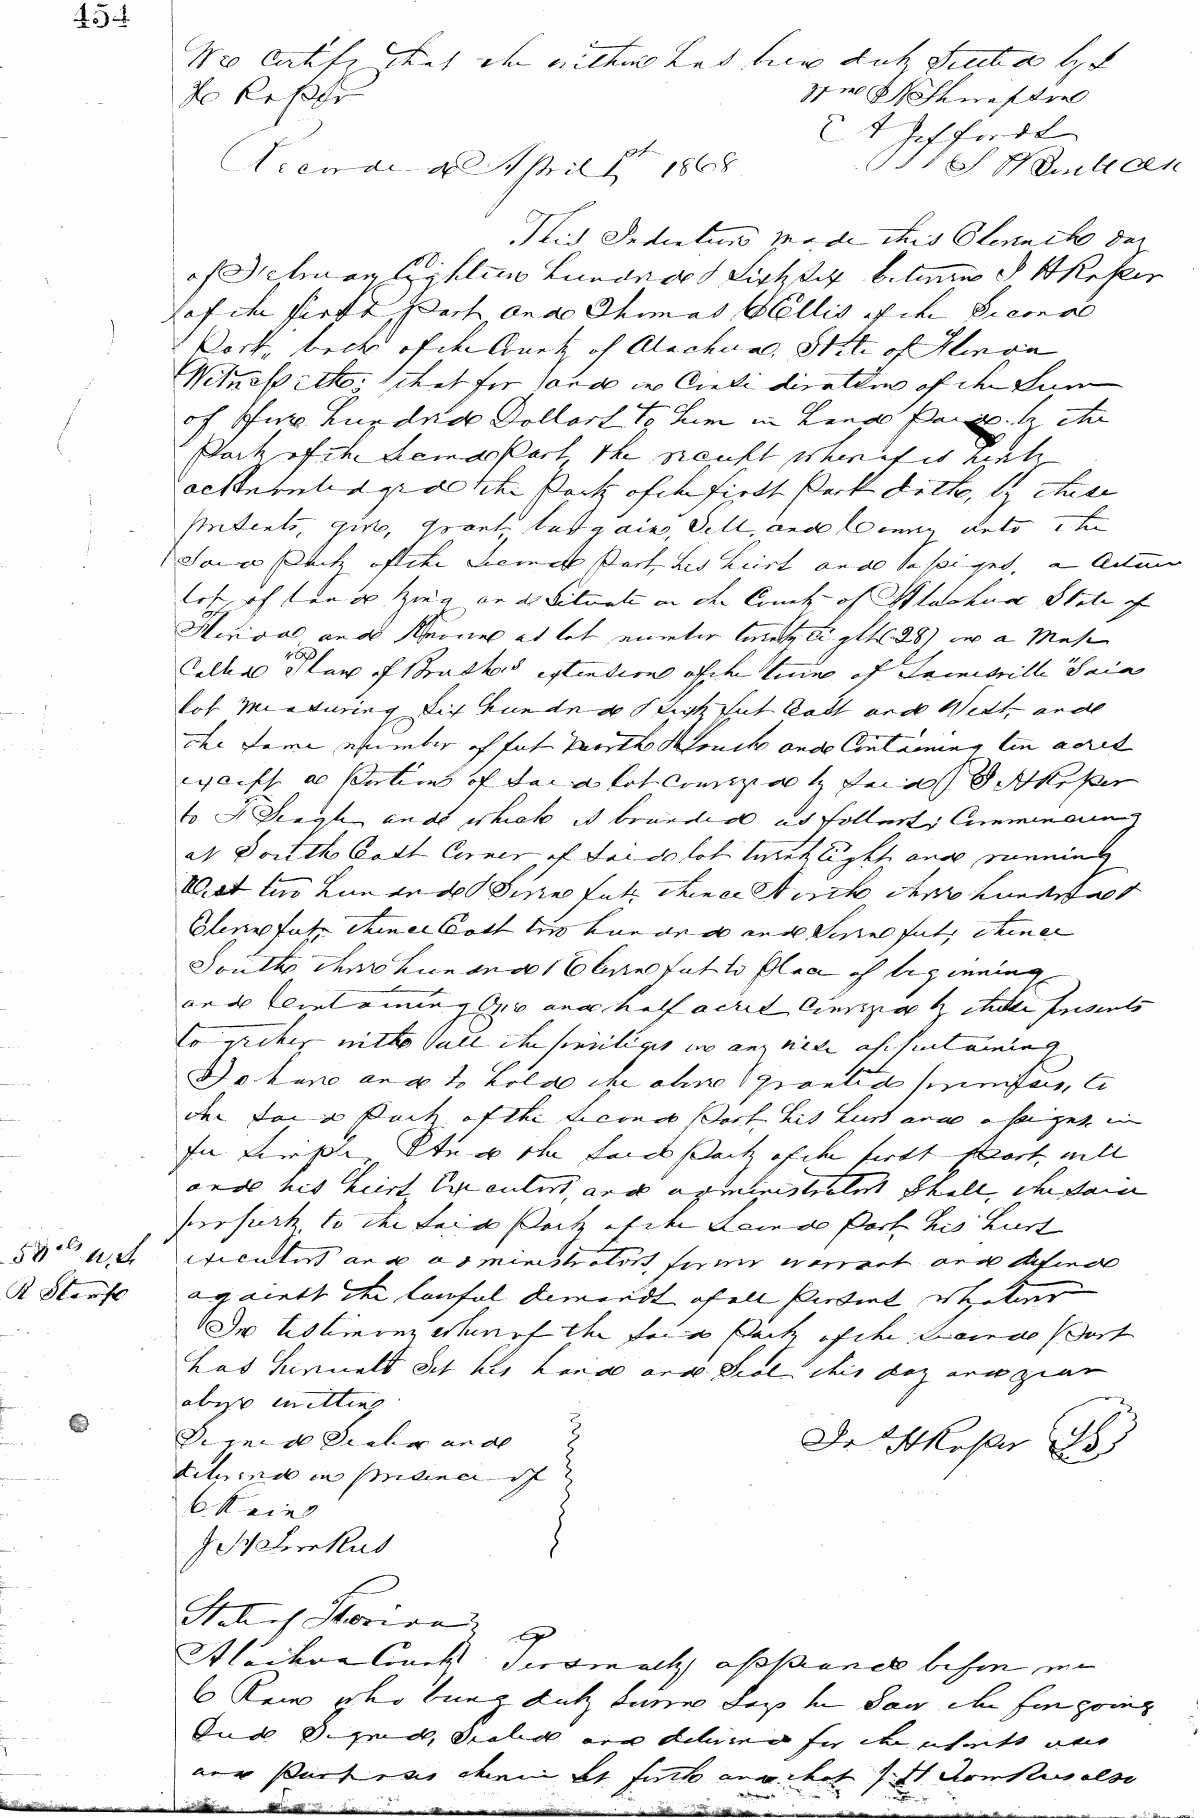 454
We certify that the within has been duly Settled by J
H Roper
C A Gifford
Recorded April 1st 1868
This Indenture made this Eleventh day
of February Eighteen hundred & Sixty Six between J H Roper
of the first Part and Thomas C Ellis of the Second
Part, both of the County of Alachua, State of Florida
Witnesseth; that for and in Consideration of the Sum
of five hundred Dollars to him in hand Paid by the
Party of the Second Part the receipt whereof is hereby
acknowledged the Party of the first Part doth, by these
presents, give, grant, bargain, Sell, and Convey unto the
Said Party of the Second Part, his heirs and assigns, a Certain
lot of land lying and Situate in the County of Alachua State of
Florida and Known as lot number twenty Eight (28) in a Map
Called "Plan of Brush's extension of the town of Gainesville" Said
lot Measuring Six hundred & Sixty feet East and West, and
the Same number of feet North & South and Containing ten acres
except a Portion of Said lot Conveyed by Said J H Roper
to F Seagle and which is bounded as follows; Commencing
at South East Corner of Said lot twenty Eight and running
West two hundred & Seven feet, thence North three hundred &
Eleven feet, thence East two hundred and Seven feet, thence
South three hundred & Eleven feet to Place of beginning
and Containing One and half acres Conveyed by these presents
together with all the privileges in any wise appertaining
To have and to hold the above granted premises, to
the Said Party of the Second Part, his heirs and assigns in
fee Simple. And the Said Party of the first Part, will
and his heirs, Executors, and administrators Shall, the Said
property to the Said Party of the Second Part, his heirs
executors and administrators, forever warrant and defend
against the lawful demands of all Persons whatever
In testimony whereof the Said Party of the Second Part
has hereunto Set his hand and Seal this day and year
above written
50 cts U.S.
R Stamp
Signed Sealed and
delivered in presence of
C Rain
Jas H Roper LS
State of Florida
Alachua County Personally appeared before me
C Rain who being duly Sworn Says he Saw the foregoing
Deed Signed, Sealed and delivered for the uses
and Purposes therein Set forth and that J H also